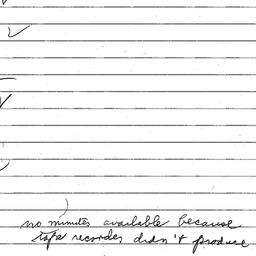 no minutes available because
tape recorder didn't produce